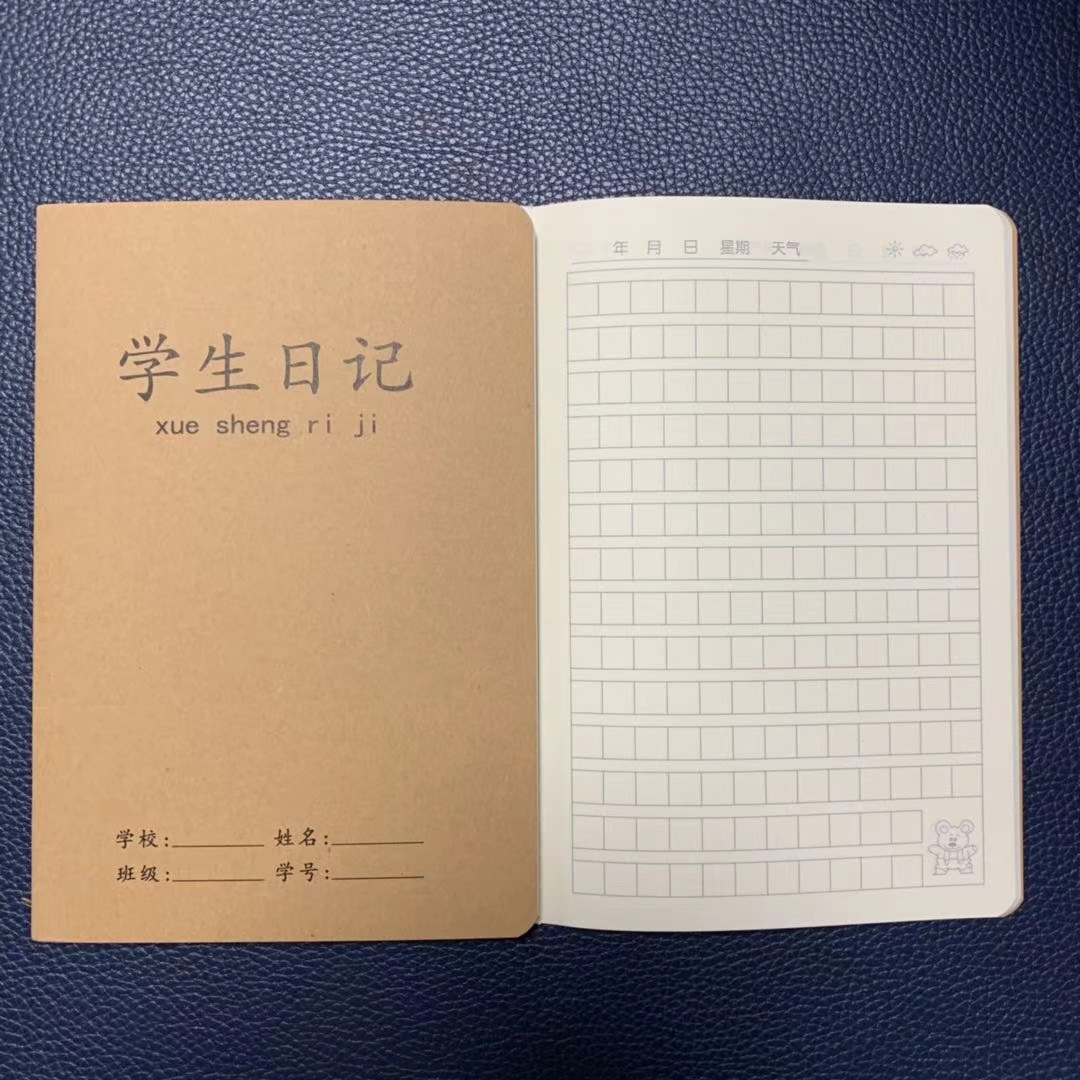 学生日记
xue sheng ri ji
学校:________ 姓名:________
班级:________ 学号:________
年 月 日 星期 天气